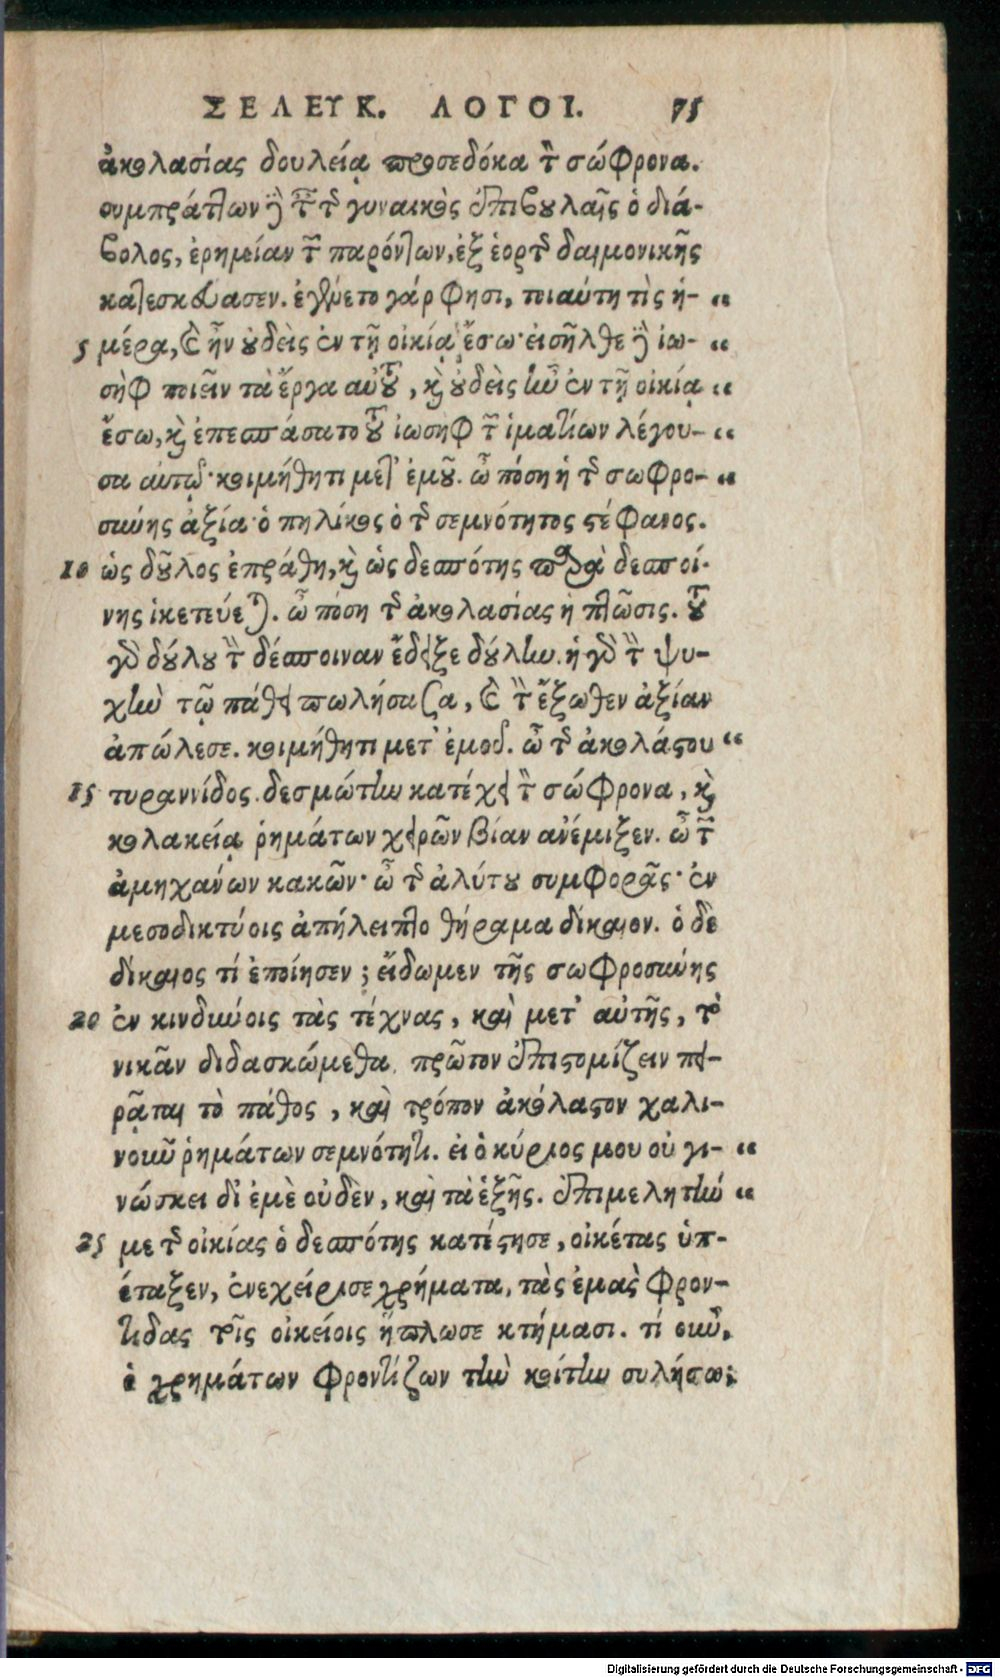 ΣΕΛΕΥΚ. ΛΟΓΟΙ. 75
ἀκολασίας δουλεία προσεδόκα τὸν σώφρονα.
συμπράττων δὲ ταῖς τῆς γυναικὸς ἐπιβουλαῖς ὁ διά-
βολος, ἐρημίαν τῶν παρόντων, ἐξ ἑορτῆς δαιμονικῆς
κατεσκεύασεν. ἐγένετο γάρ φησι, τοιαύτη τὶς ἡ- “
5 μέρα, καὶ ἦν οὐδεὶς ἐν τῇ οἰκίᾳ ἔσω· εἰσῆλθε δὲ ἰω- “
σὴφ ποιεῖν τὰ ἔργα αὐτοῦ, καὶ οὐδεὶς ἦν ἐν τῇ οἰκίᾳ “
ἔσω, καὶ ἐπεσπάσατο τοῦ ἰωσὴφ τῶν ἱματίων λέγου- “
σα αὐτῷ· κοιμήθητι μετ' ἐμοῦ. ὦ πόση ἡ τῆς σωφρο- “
σύνης ἀξία· ὁ πηλίκος ὁ τῆς σεμνότητος στέφανος.
10 ὡς δοῦλος ἐπράθη, καὶ ὡς δεσπότης παρὰ δεσποί-
νης ἱκετεύεται. ὦ πόση τῆς ἀκολασίας ἡ πτῶσις. τοῦ
γὰρ δούλου τὴν δέσποιναν ἔδειξε δούλην. ἡ γὰρ τὴν ψυ-
χὴν τῷ πάθει πωλήσασα, καὶ τὴν ἔξωθεν ἀξίαν
ἀπώλεσε. κοιμήθητι μετ' ἐμοῦ. ὦ τῆς ἀκολάστου “
15 τυραννίδος. δεσμώτην κατέχει τὸν σώφρονα, καὶ
κολακείᾳ ῥημάτων χειρῶν βίαν ἀνέμιξεν. ὦ τῶν
ἀμηχάνων κακῶν· ὦ τῆς ἀλύτου συμφορᾶς· ἐν
μεσοδικτύοις ἀπήλειπτο θήραμα δίκαιον. ὁ δὲ
δίκαιος τί ἐποίησεν; εἴδωμεν τῆς σωφροσύνης
20 ἐν κινδύνοις τὰς τέχνας, καὶ μετ' αὐτῆς, τὸ
νικᾶν διδασκώμεθα. πρῶτον ἐπιστομίζειν πει-
ρᾶται τὸ πάθος, καὶ τρόπον ἀκόλαστον χαλι-
νοῦν ῥημάτων σεμνότητι. εἰ ὁ κύριος μου οὐ γι- “
νώσκει δι' ἐμὲ οὐδὲν, καὶ τὰ ἑξῆς. ἐπιμελητήν “
25 με τῆς οἰκίας ὁ δεσπότης κατέστησε, οἰκέτας ὑπ-
έταξεν, ἐνεχείρισε χρήματα, τὰς ἐμὰς φρον-
τίδας τοῖς οἰκείοις ἥπλωσε κτήμασι. τί οὖν,
ὁ χρημάτων φροντίζων τὴν κοίτην συλήσω;
Digitalisierung gefördert durch die Deutsche Forschungsgemeinschaft - DFG